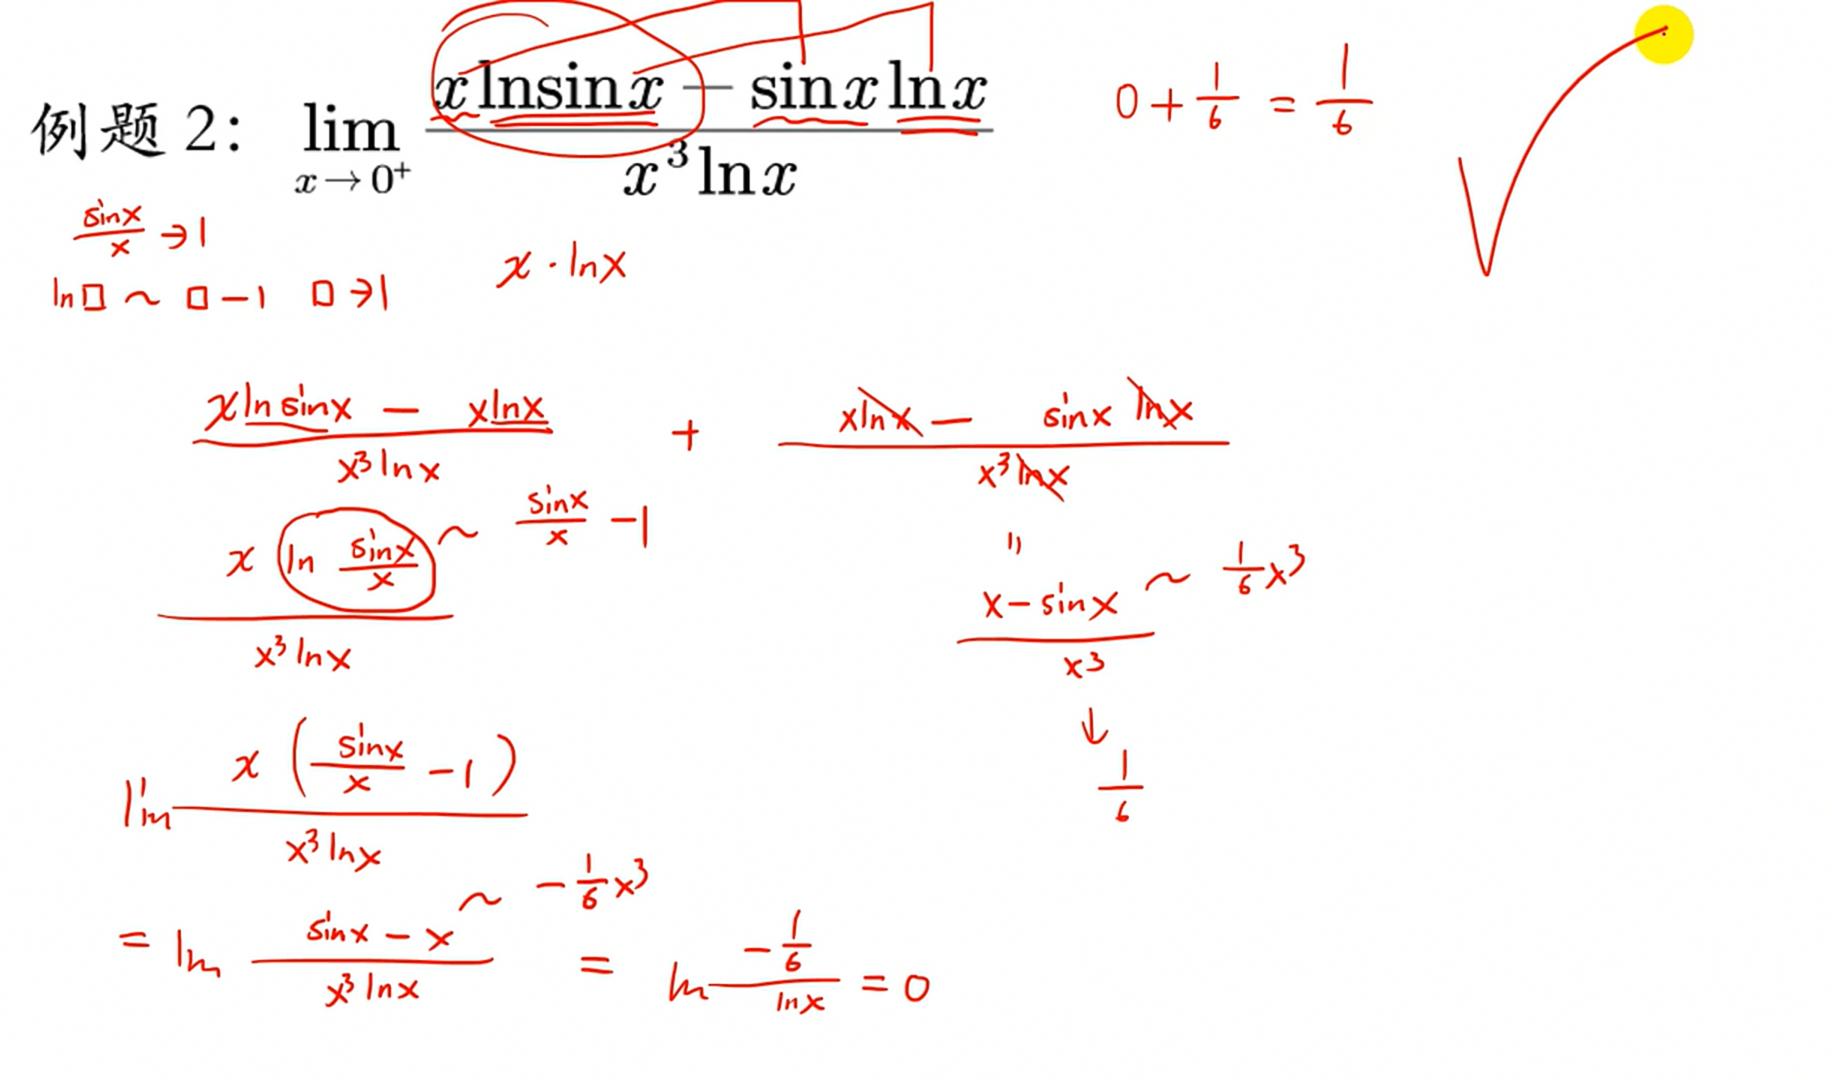 例题 2: lim x→0⁺ (x lnsin x − sin x ln x) / (x³ ln x)
0 + 1/6 = 1/6
sinx/x → 1
x · lnx
ln□ ~ □ − 1 □ → 1
(x ln sinx − x lnx) / (x³ lnx) + (x lnx − sinx lnx) / (x³ lnx)
(x ln (sinx/x)) / (x³ lnx) ~ sinx/x − 1
=
(x − sinx) / x³ ~ 1/6 x³
↓
1/6
lim (x (sinx/x − 1)) / (x³ lnx)
= lim (sinx − x) / (x³ lnx) ~ −1/6 x³ = lim (−1/6) / lnx = 0